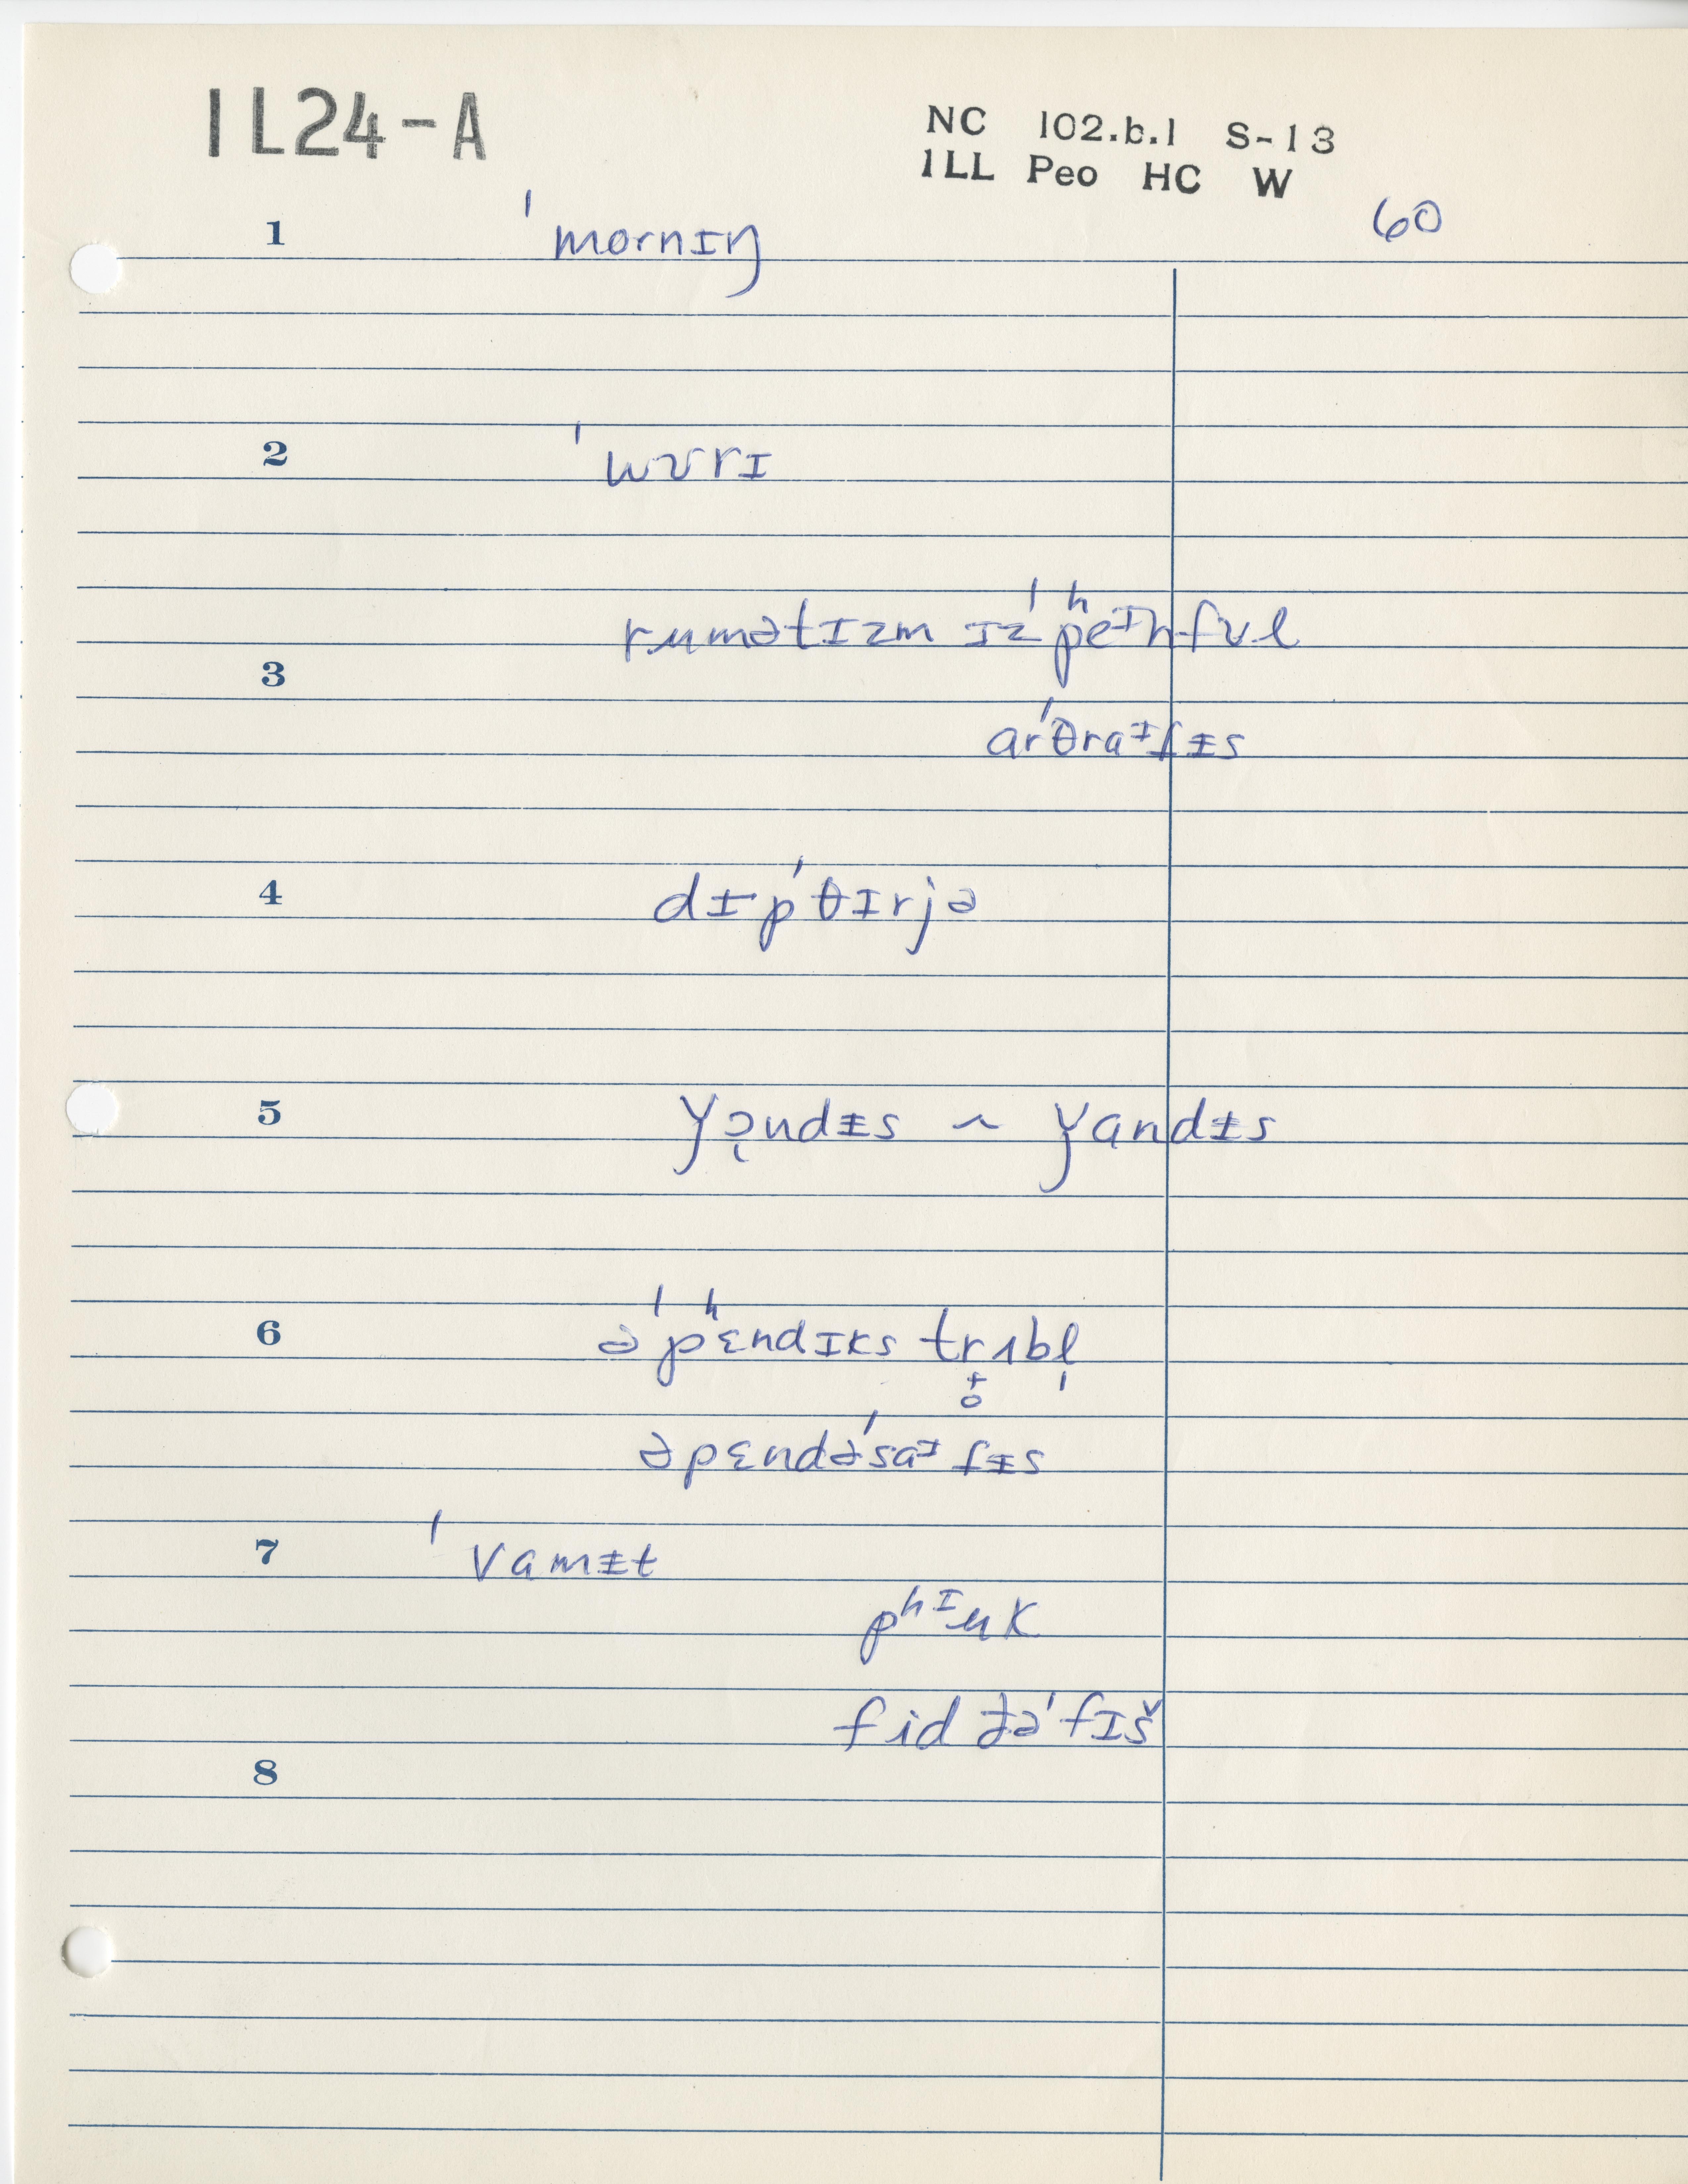 IL24-A
NC 102.b.1 S-13
ILL Peo HC W
60
1 ˈmornɪŋ
2 ˈwʊrɪ
rumətɪzm ɪz ˈpʰeᶦnfʊl
3
arˈθraᶦɾɨs
4 dɨpˈθɪrjə
5 ɣandɨs
6 əˈpʰɛndɪks trʌbl̩
əpɛndəˈsaᶦɾɨs
7 ˈvamɨt
pʰᶦuk
fid ðəˈfɪš
8